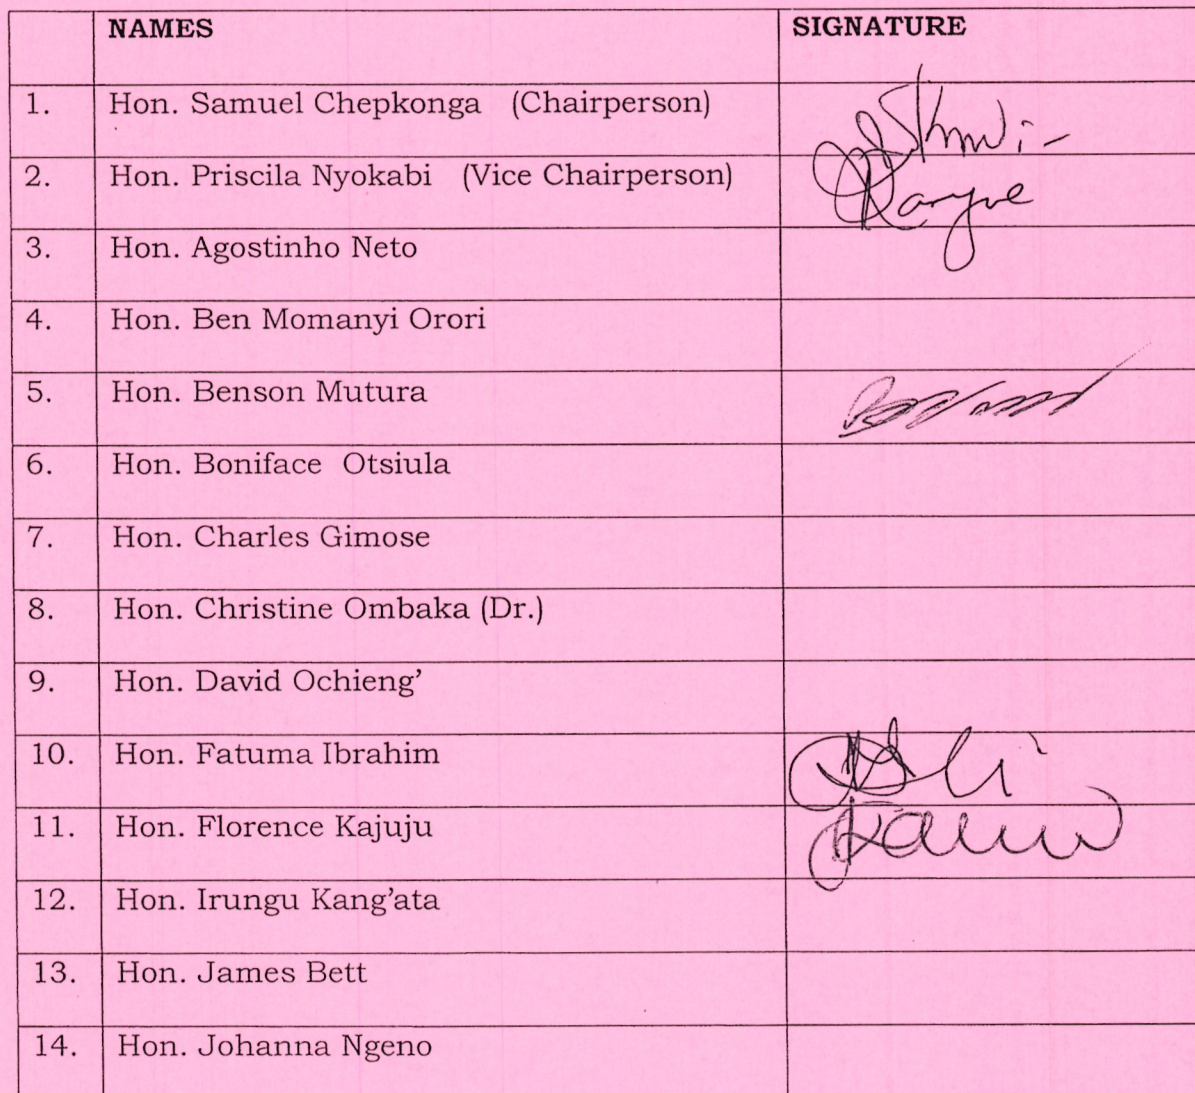 NAMES SIGNATURE
1. Hon. Samuel Chepkonga (Chairperson)
2. Hon. Priscila Nyokabi (Vice Chairperson)
3. Hon. Agostinho Neto
4. Hon. Ben Momanyi Orori
5. Hon. Benson Mutura
6. Hon. Boniface Otsiula
7. Hon. Charles Gimose
8. Hon. Christine Ombaka (Dr.)
9. Hon. David Ochieng’
10. Hon. Fatuma Ibrahim
11. Hon. Florence Kajuju
12. Hon. Irungu Kang’ata
13. Hon. James Bett
14. Hon. Johanna Ngeno